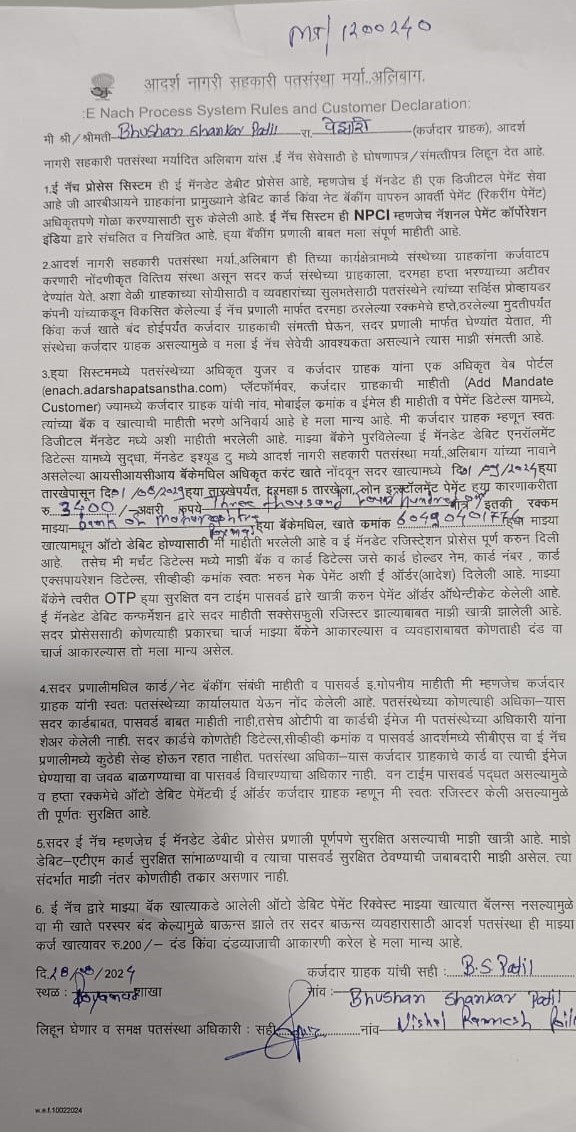 MT/1200240
आदर्श नागरी सहकारी पतसंस्था मर्या.,अलिबाग.
:E Nach Process System Rules and Customer Declaration:
मी श्री/श्रीमती Bhushan Shankar Patil रा. पेझारी (कर्जदार ग्राहक), आदर्श
नागरी सहकारी पतसंस्था मर्यादित अलिबाग यांस .ई नॅच सेवेसाठी हे घोषणापत्र/संमत्तीपत्र लिहून देत आहे.
1.ई नॅच प्रोसेस सिस्टम ही ई मॅनडेट डेबीट प्रोसेस आहे, म्हणजेच ई मॅनडेट ही एक डिजीटल पेमेंट सेवा
आहे जी आरबीआयने ग्राहकांना प्रामुख्याने डेबिट कार्ड किंवा नेट बँकींग वापरुन आवर्ती पेमेंट (रिकरींग पेमेंट)
अधिकृतपणे गोळा करण्यासाठी सुरु केलेली आहे. ई नॅच सिस्टम ही NPCI म्हणजेच नॅशनल पेमेंट कॉर्पोरेशन
इंडिया द्वारे संचलित व नियंत्रित आहे. हया बँकींग प्रणाली बाबत मला संपूर्ण माहीती आहे.
2.आदर्श नागरी सहकारी पतसंस्था मर्या.,अलिबाग ही तिच्या कार्यक्षेत्रामध्ये संस्थेच्या ग्राहकांना कर्जवाटप
करणारी नोंदणीकृत वित्तिय संस्था असून सदर कर्ज संस्थेच्या ग्राहकाला, दरमहा हप्ता भरण्याच्या अटीवर
देण्यांत येते. अशा वेळी ग्राहकाच्या सोयीसाठी व व्यवहारांच्या सुलभतेसाठी पतसंस्थेने त्यांच्या सर्व्हिस प्रोव्हायडर
कंपनी यांच्याकडून विकसित केलेल्या ई नॅच प्रणाली मार्फत दरमहा ठरलेल्या रक्कमेचे हप्ते,ठरलेल्या मुदतीपर्यंत
किंवा कर्ज खाते बंद होईपर्यंत कर्जदार ग्राहकाची संमत्ती घेऊन, सदर प्रणाली मार्फत घेण्यांत येतात, मी
संस्थेचा कर्जदार ग्राहक असल्यामुळे व मला ई नॅच सेवेची आवश्यकता असल्याने त्यास माझी संमत्ती आहे.
3.हया सिस्टममध्ये पतसंस्थेच्या अधिकृत युजर व कर्जदार ग्राहक यांना एक अधिकृत वेब पोर्टल
(enach.adarshapatsanstha.com) प्लॅटफॉर्मवर, कर्जदार ग्राहकाची माहीती (Add Mandate
Customer) ज्यामध्ये कर्जदार ग्राहकाची नांव, मोबाईल क्रमांक व ईमेल ही माहीती व पेमेंट डिटेल्स यामध्ये,
त्यांच्या बँक व खात्याची माहीती भरणे अनिवार्य आहे हे मला मान्य आहे. मी कर्जदार ग्राहक म्हणून स्वतः
डिजीटल मॅनडेट मध्ये अशी माहीती भरलेली आहे. माझ्या बँकेने पुरविलेल्या ई मॅनडेट डेबिट एनरॉलमेंट
डिटेल्स यामध्ये सुद्धा, मॅनडेट इश्यूड टु मध्ये आदर्श नागरी सहकारी पतसंस्था मर्या.,अलिबाग यांच्या नावाने
असलेल्या आयसीआयसीआय बँकेमधिल अधिकृत करंट खाते नोंदवून सदर खात्यामध्ये दि. /2024हया
तारखेपासून दि. हया तारखेपर्यंत, दरमहा 5 तारखेला, लोन इन्स्टॉलमेंट पेमेंट हया कारणाकरीता
रु. 3400/- अक्षरी रुपये Three thousand Four hundred मात्र/इतकी रक्कम
माझ्या Bank of Maharashtra हया बँकेमधिल, खाते क्रमांक हया माझ्या
खात्यामधून ऑटो डेबिट होण्यासाठी मी माहीती भरलेली आहे व ई मॅनडेट रजिस्ट्रेशन प्रोसेस पूर्ण करुन दिली
आहे. तसेच मी मर्चंट डिटेल्स मध्ये माझी बँक व कार्ड डिटेल्स जसे कार्ड होल्डर नेम, कार्ड नंबर , कार्ड
एक्सपायरेशन डिटेल्स, सीव्हीव्ही क्रमांक स्वतः भरुन मेक पेमेंट अशी ई ऑर्डर(आदेश) दिलेली आहे. माझ्या
बँकेने त्वरीत OTP हया सुरक्षित वन टाईम पासवर्ड द्वारे खात्री करुन पेमेंट ऑर्डर ऑथेन्टीकेट केलेली आहे.
ई मॅनडेट डेबिट कन्फर्मेशन द्वारे सदर माहीती सक्सेसफुली रजिस्टर झाल्याबाबत माझी खात्री झालेली आहे.
सदर प्रोसेससाठी कोणत्याही प्रकारचा चार्ज माझ्या बँकेने आकारल्यास व व्यवहाराबाबत कोणताही दंड वा
चार्ज आकारल्यास तो मला मान्य असेल.
4.सदर प्रणालीमधिल कार्ड/नेट बँकींग संबंधी माहीती व पासवर्ड इ.गोपनीय माहीती मी म्हणजेच कर्जदार
ग्राहक यांनी स्वतः पतसंस्थेच्या कार्यालयात येऊन नोंद केलेली आहे. पतसंस्थेच्या कोणत्याही अधिका-यास
सदर कार्डबाबत, पासवर्ड बाबत माहीती नाही,तसेच ओटीपी वा कार्डची ईमेज मी पतसंस्थेच्या अधिकारी यांना
शेअर केलेली नाही. सदर कार्डचे कोणतेही डिटेल्स,सीव्हीव्ही क्रमांक व पासवर्ड आदर्शमध्ये सीबीएस वा ई नॅच
प्रणालीमध्ये कुठेही सेव्ह होऊन रहात नाहीत. पतसंस्था अधिका-यास कर्जदार ग्राहकाचे कार्ड वा त्याची ईमेज
घेण्याचा वा जवळ बाळगण्याचा वा पासवर्ड विचारण्याचा अधिकार नाही. वन टाईम पासवर्ड पद्धत असल्यामुळे
व हप्ता रक्कमेचे ऑटो डेबिट पेमेंटची ई ऑर्डर कर्जदार ग्राहक म्हणून मी स्वतः रजिस्टर केली असल्यामुळे
ती पूर्णतः सुरक्षित आहे.
5.सदर ई नॅच म्हणजेच ई मॅनडेट डेबीट प्रोसेस प्रणाली पूर्णपणे सुरक्षित असल्याची माझी खात्री आहे. माझे
डेबिट–एटीएम कार्ड सुरक्षित सांभाळण्याची व त्याचा पासवर्ड सुरक्षित ठेवण्याची जबाबदारी माझी असेल. त्या
संदर्भात माझी नंतर कोणतीही तक्रार असणार नाही.
6. ई नॅच द्वारे माझ्या बँक खात्याकडे आलेली ऑटो डेबिट पेमेंट रिक्वेस्ट माझ्या खात्यात बॅलन्स नसल्यामुळे
वा मी खाते परस्पर बंद केल्यामुळे बाऊन्स झाले तर सदर बाऊन्स व्यवहारासाठी आदर्श पतसंस्था ही माझ्या
कर्ज खात्यावर रु.200/– दंड किंवा दंडव्याजाची आकारणी करेल हे मला मान्य आहे.
दि. /2024 कर्जदार ग्राहक यांची सही : B.S Patil
स्थळ : शाखा नांव :- Bhushan Shankar Patil
लिहून घेणार व समक्ष पतसंस्था अधिकारी : सही नांव
w.e.f.10022024